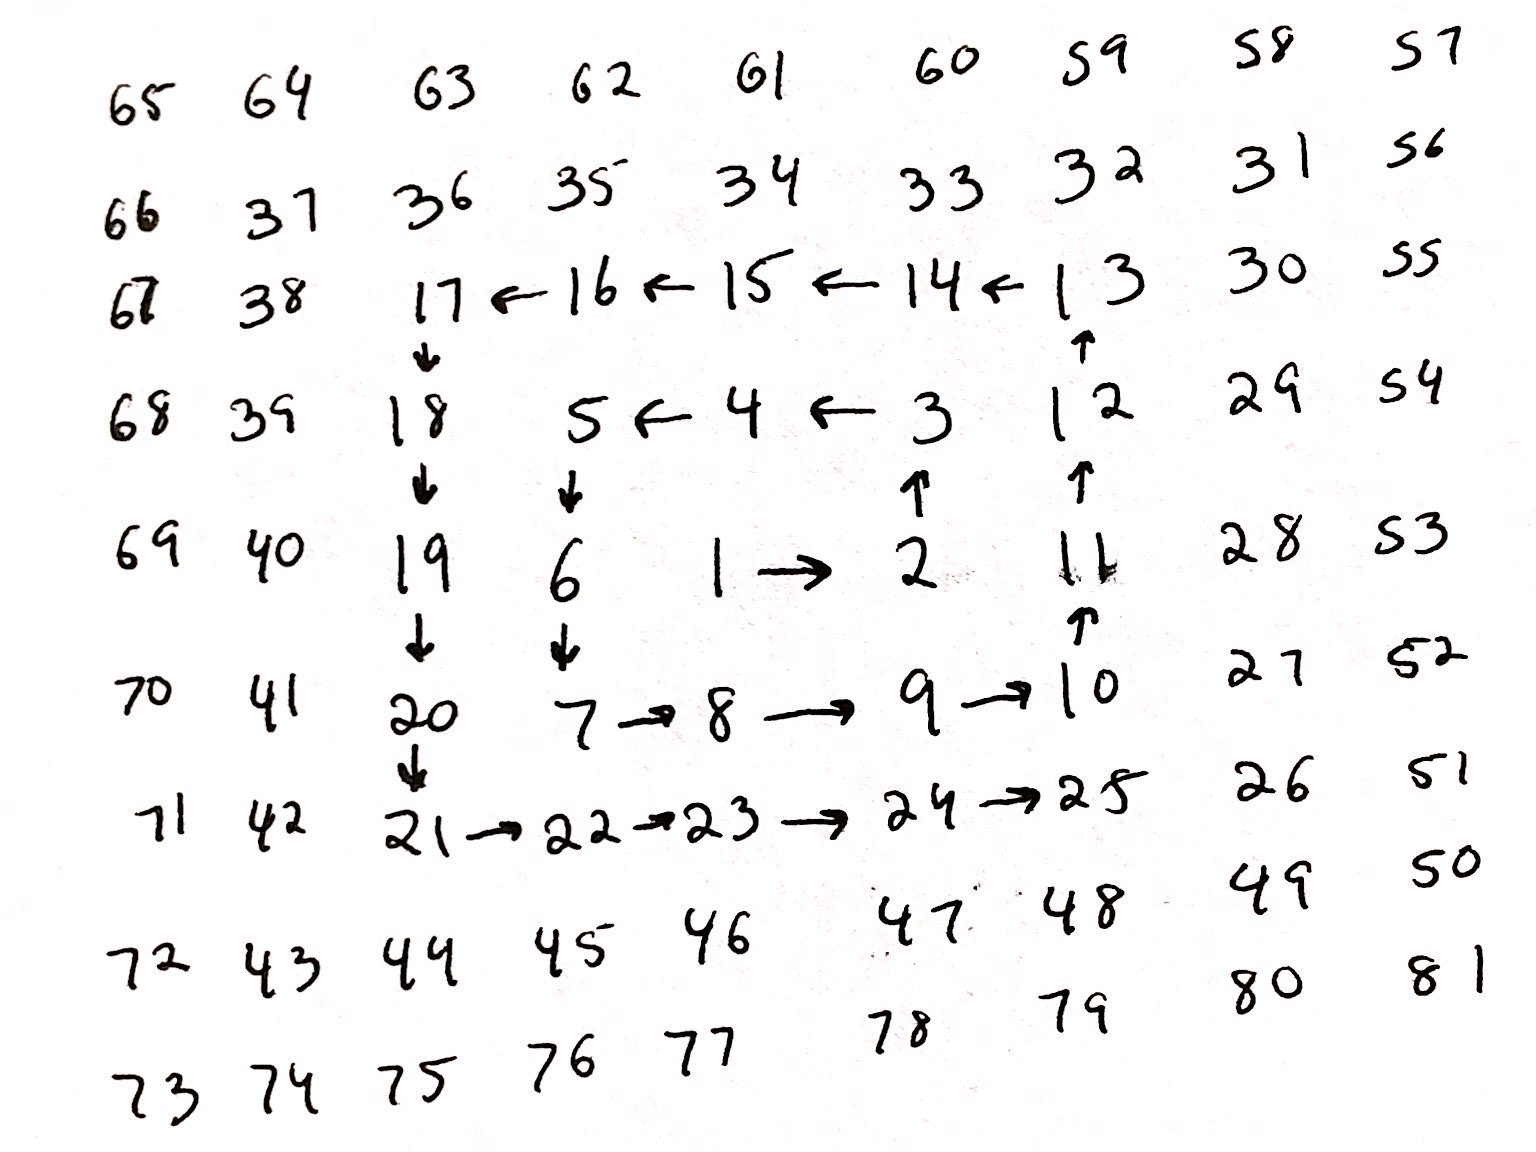 65 64 63 62 61 60 59 58 57
66 37 36 35 34 33 32 31 56
67 38 17 ← 16 ← 15 ← 14 ← 13 30 55
↓ ↑
68 39 18 5 ← 4 ← 3 12 29 54
↓ ↓ ↑ ↑
69 40 19 6 1 → 2 11 28 53
↓ ↓ ↑
70 41 20 7 → 8 → 9 → 10 27 52
↓
71 42 21 → 22 → 23 → 24 → 25 26 51
72 43 44 45 46 47 48 49 50
73 74 75 76 77 78 79 80 81